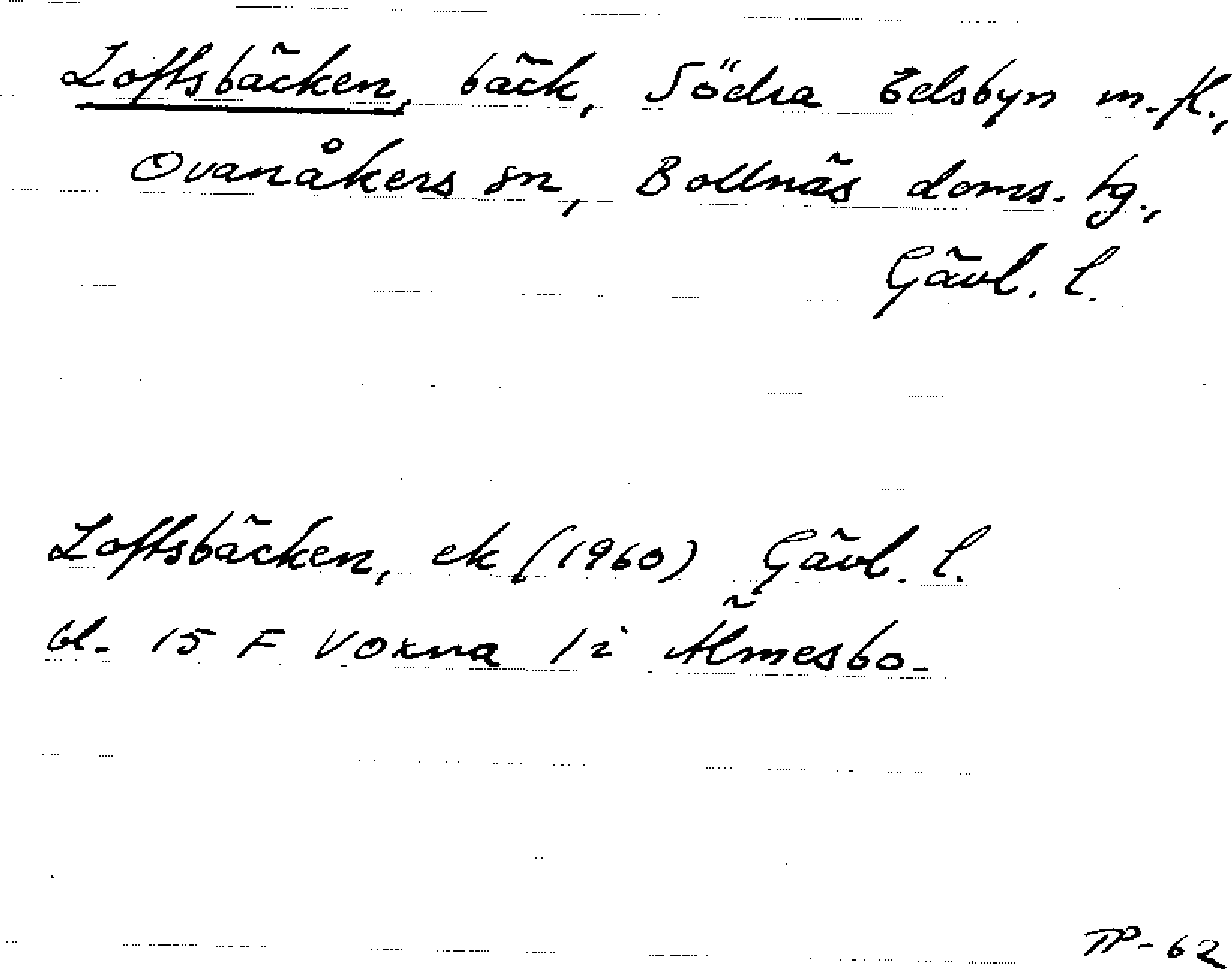 Loftsbäcken, bäck, Södra Edsbyn m. fl.,
Ovanåkers sn, Bollnäs doms. tg.,
Gävl. l.
Loftsbäcken, ek (1960) Gävl. l.
bl. 15 F Voxna 1 i Älmesbo.
TP-62